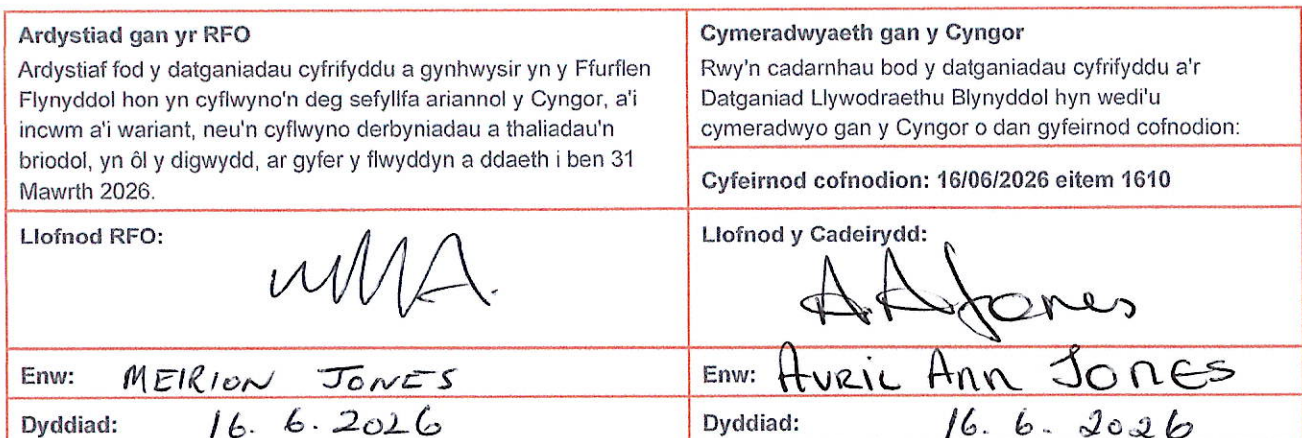 Ardystiad gan yr RFO
Ardystiaf fod y datganiadau cyfrifyddu a gynhwysir yn y Ffurflen
Flynyddol hon yn cyflwyno'n deg sefyllfa ariannol y Cyngor, a'i
incwm a'i wariant, neu'n cyflwyno derbyniadau a thaliadau'n
briodol, yn ôl y digwydd, ar gyfer y flwyddyn a ddaeth i ben 31
Mawrth 2026.
Cymeradwyaeth gan y Cyngor
Rwy'n cadarnhau bod y datganiadau cyfrifyddu a'r
Datganiad Llywodraethu Blynyddol hyn wedi'u
cymeradwyo gan y Cyngor o dan gyfeirnod cofnodion:
Cyfeirnod cofnodion: 16/06/2026 eitem 1610
Llofnod RFO:
Llofnod y Cadeirydd:
A A Jones
Enw: MEIRION JONES
Enw: AVRIL ANN JONES
Dyddiad: 16. 6. 2026
Dyddiad: 16. 6. 2026